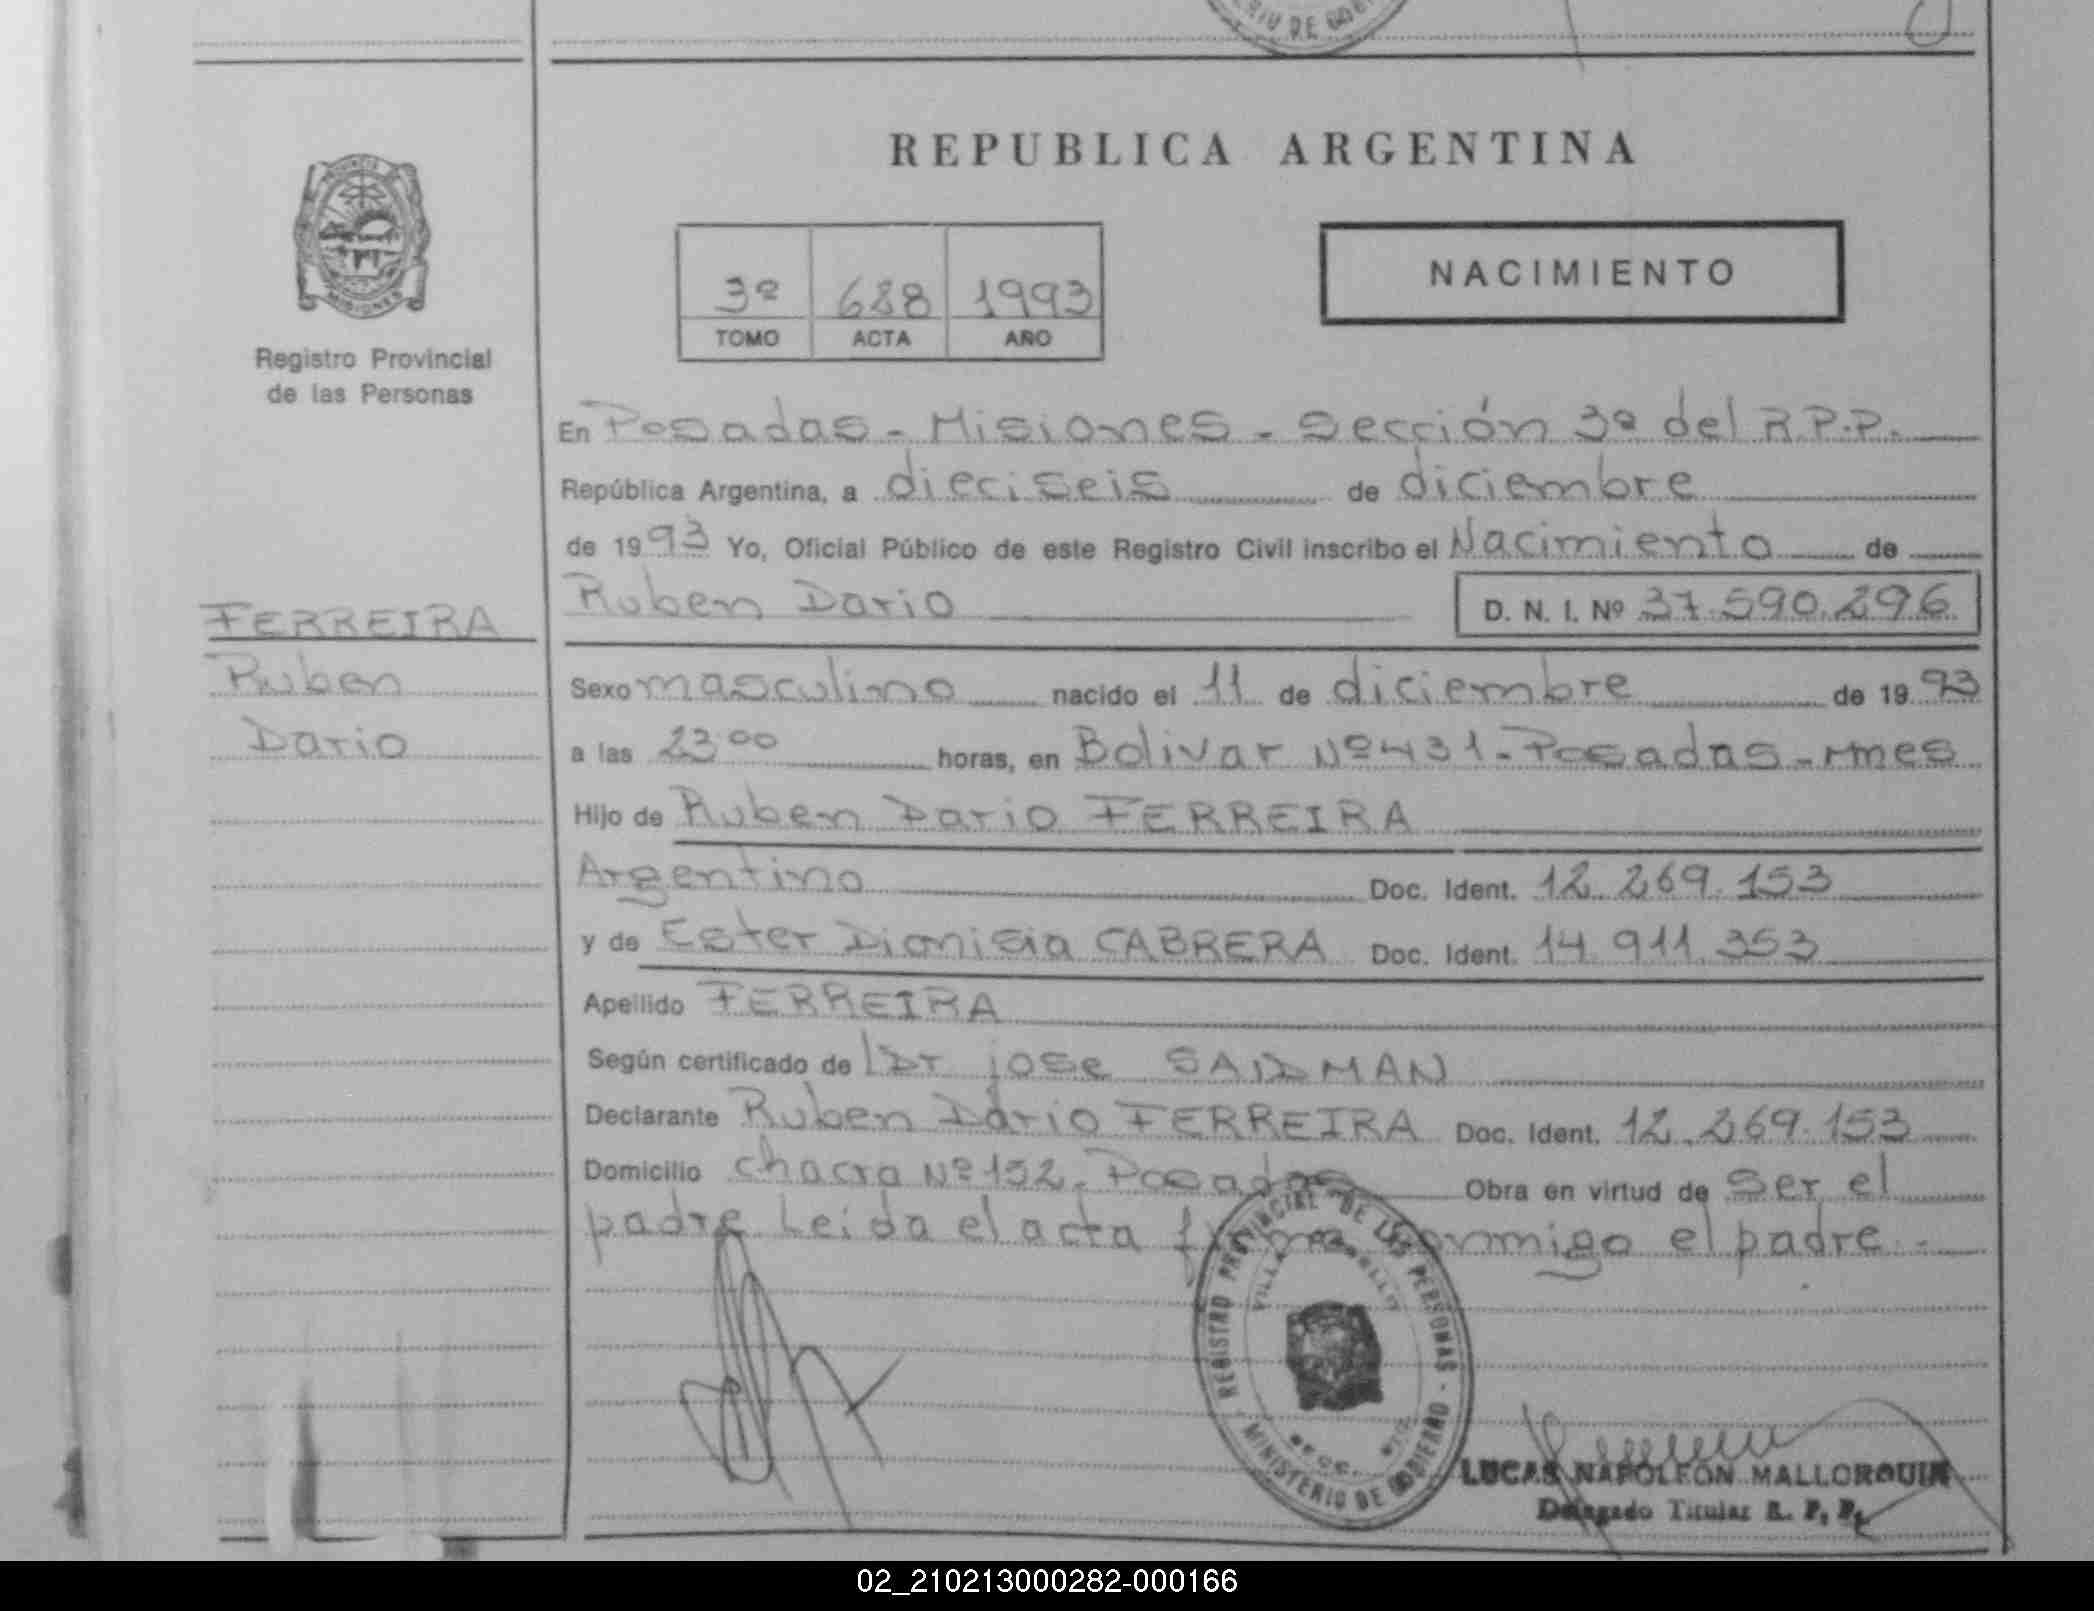 REPUBLICA ARGENTINA
Registro Provincial
de las Personas
3º 688 1993
TOMO ACTA AÑO
NACIMIENTO
En Posadas - Misiones - Sección 3ª del R.P.P.
República Argentina, a dieciseis de diciembre
de 1993 Yo, Oficial Público de este Registro Civil inscribo el Nacimiento de
Ruben Dario D. N. I. Nº 37.590.296
FERREIRA
Ruben
Dario
Sexo masculino nacido el 11 de diciembre de 1993
a las 23 00 horas, en Bolivar Nº 431 - Posadas - Mnes
Hijo de Ruben Dario FERREIRA
Argentino Doc. Ident. 12.269.153
y de Ester Dionisia CABRERA Doc. Ident. 14.911.353
Apellido FERREIRA
Según certificado de Dr jose SAIDMAN
Declarante Ruben Dario FERREIRA Doc. Ident. 12.269.153
Domicilio chacra Nº 152 - Posadas Obra en virtud de ser el
padre Leida el acta firma conmigo el padre -
REGISTRO PROVINCIAL DE LAS PERSONAS - MINISTERIO DE GOBIERNO
VILLA
LUCAS NAPOLEON MALLORQUIN
Delegado Titular R. P. P.
02_210213000282-000166